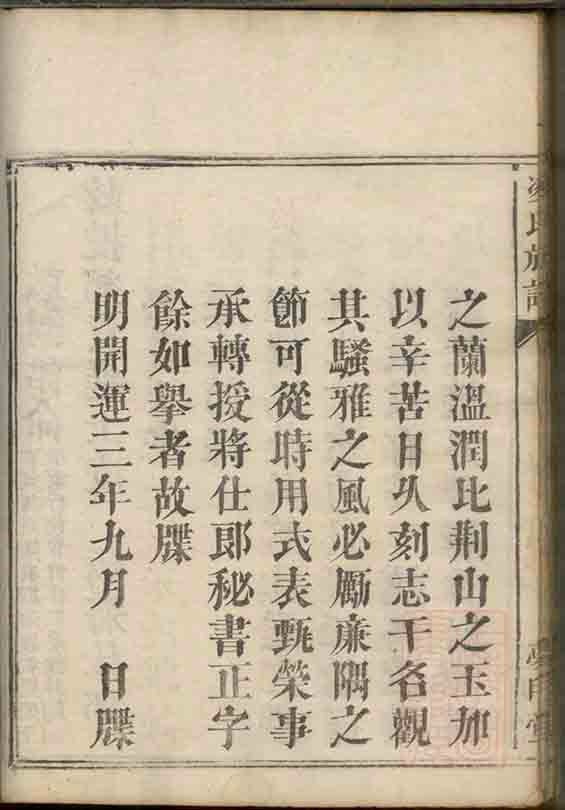 之蘭溫潤比荆山之玉加
以辛苦日久刻志干名觀
其騷雅之風必勵廉隅之
節可從時用式表甄榮事
承轉授將仕郎秘書正字
餘如舉者故牒
明開運三年九月　日牒
氏族譜